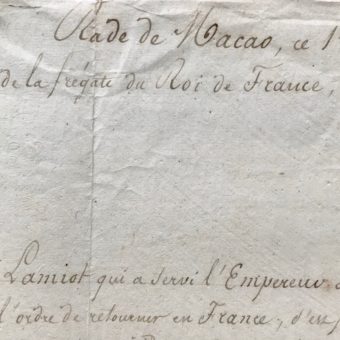 Rade de Macao, ce 1
de la frégate du Roi de France,
Lamiot qui a servi l'Empereur
l'ordre de retourner en France, s'est